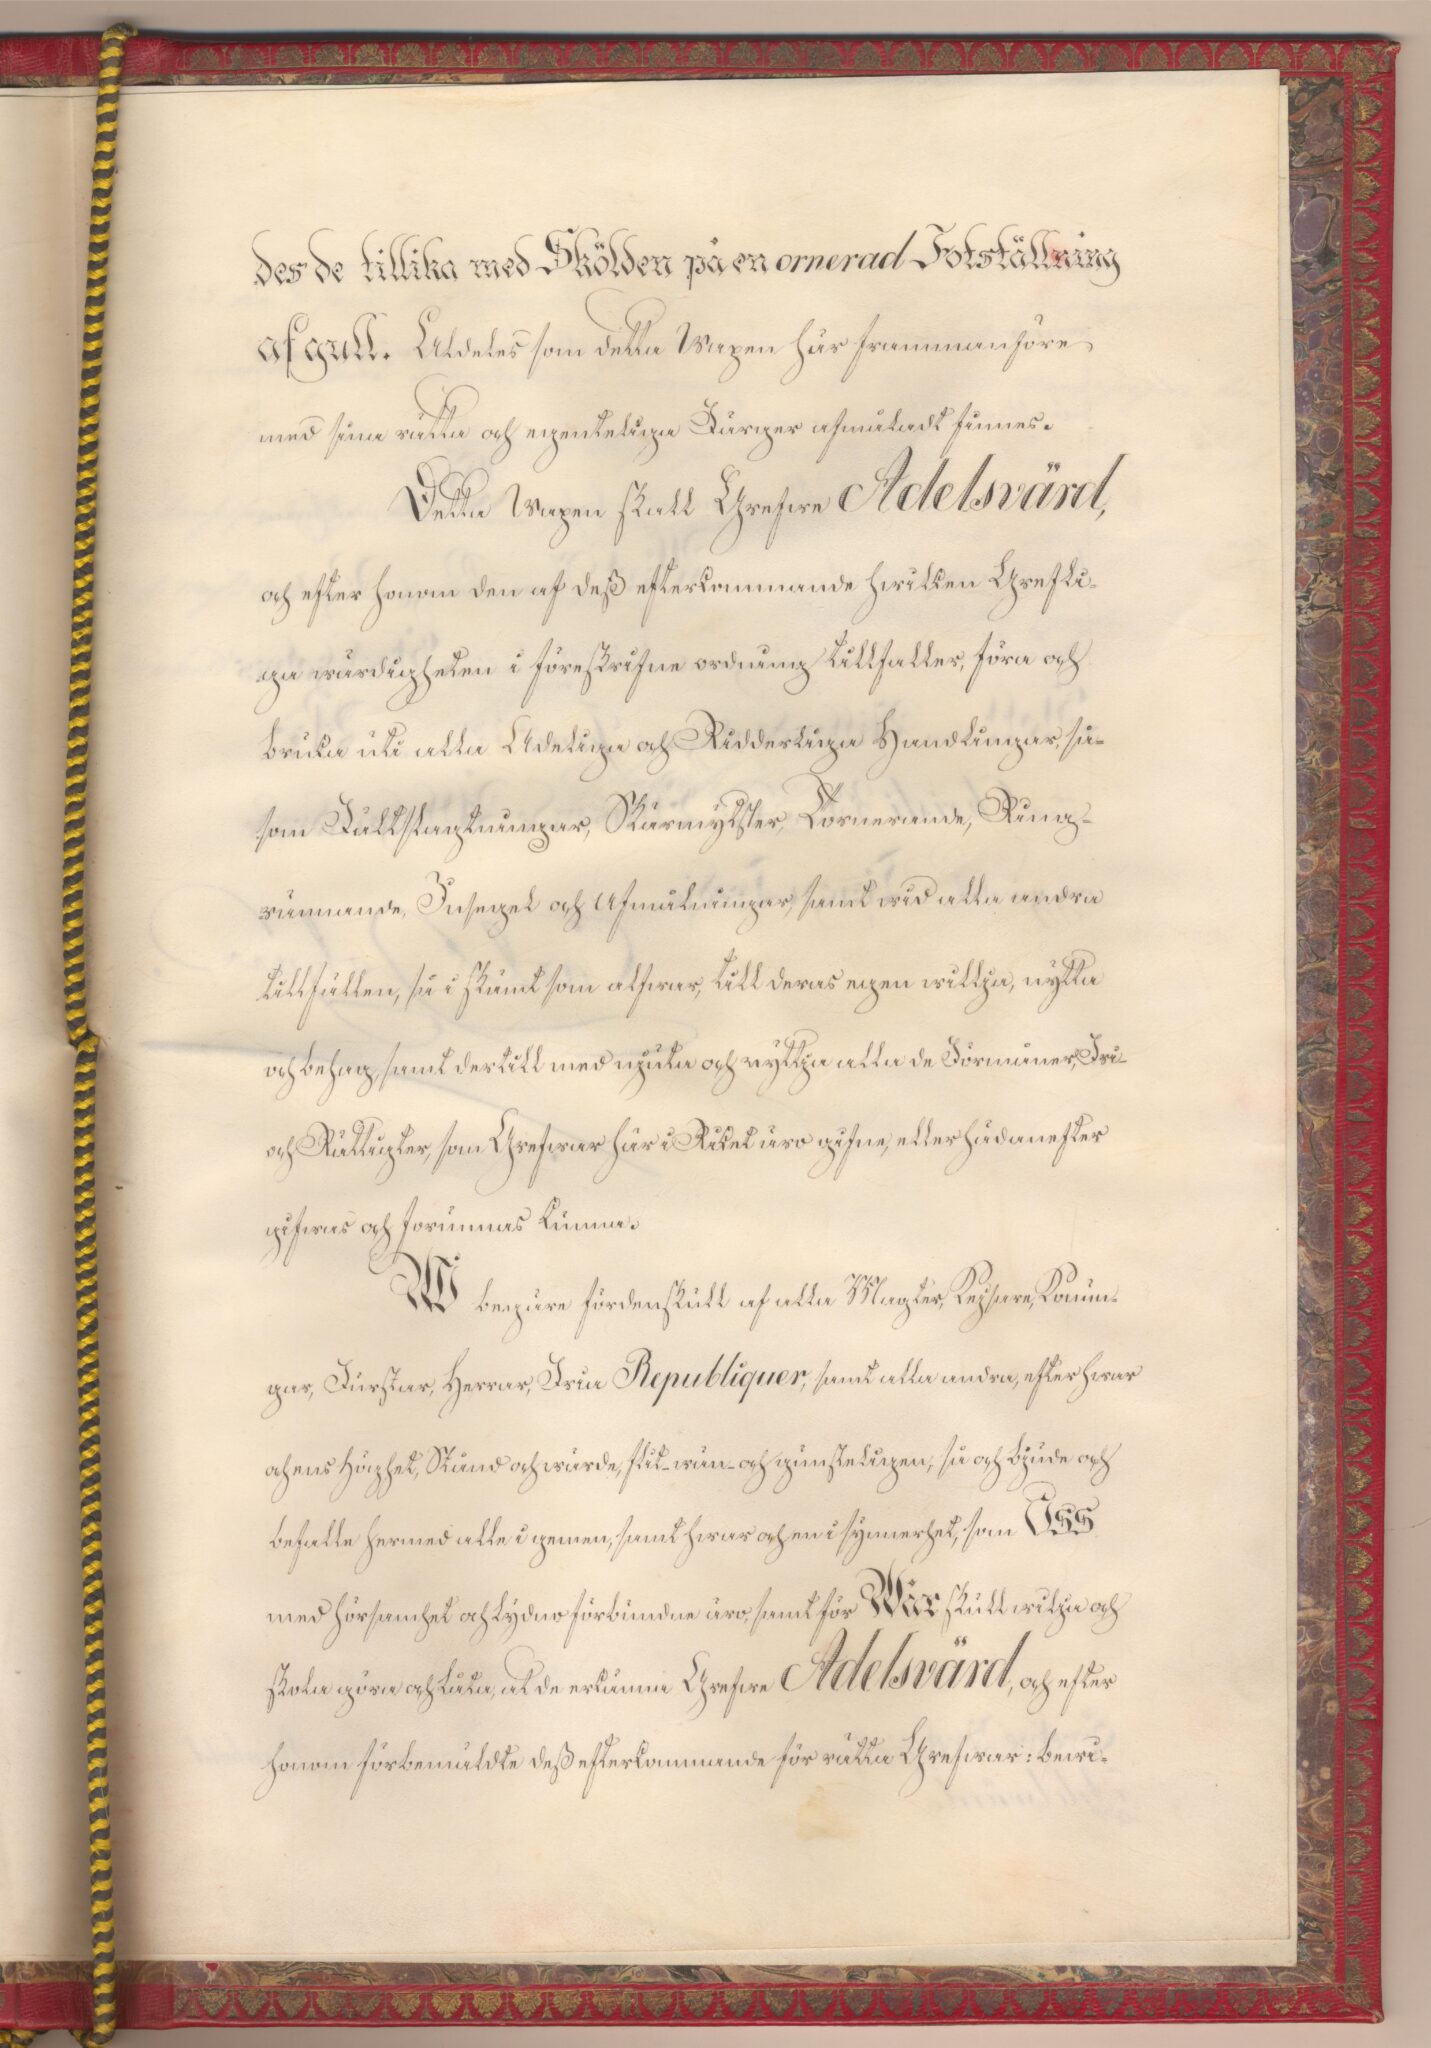 des de tillika med Skölden på en ornerad Fotställning
af gull. Aldeles som detta Wapen här frammanföre
med sina rätta och egenteliga Färger afmåladt finnes.
Detta Wapen skall Grefwe Adelsvärd,
och efter honom den af deß efterkommande hwilken Grefli-
ga wärdigheten i föreskrifne ordning tillfaller, föra och
bruka uti alla Adeliga och Ridderliga Handlingar, så-
som Fältslagtningar, Skärmytsler, Törnerande, Ring-
rännande, Insegel och Afmålningar, samt wid alla andra
tillfällen, så i skämt som alfwar, till deras egen willja, nytta
och behag, samt dertill med njuta och nyttja alla de Förmåner, Fri-
och Rättigter, som Grefwar här i Riket äro gifne, eller hädanefter
gifwas och förunnas kunna.
Wi begäre fördenskull af alla Magter, Kejsare, Konun-
gar, Furstar, Herrar, Fria Republiquer, samt alla andra, efter hwar
och ens Höghet, Stånd och wärde, flit- wän- och gunsteligen, så och bjude och
befalle hermed alle i gemen, samt hwar och en i synnerhet, som Oss
med hörsamhet och lydno förbundne äro, samt för Wår skull wilja och
skola göra och låta, at de erkänna Grefwe Adelsvärd, och efter
honom förbemäldte deß efterkommande för rätta Grefwar: bewi-